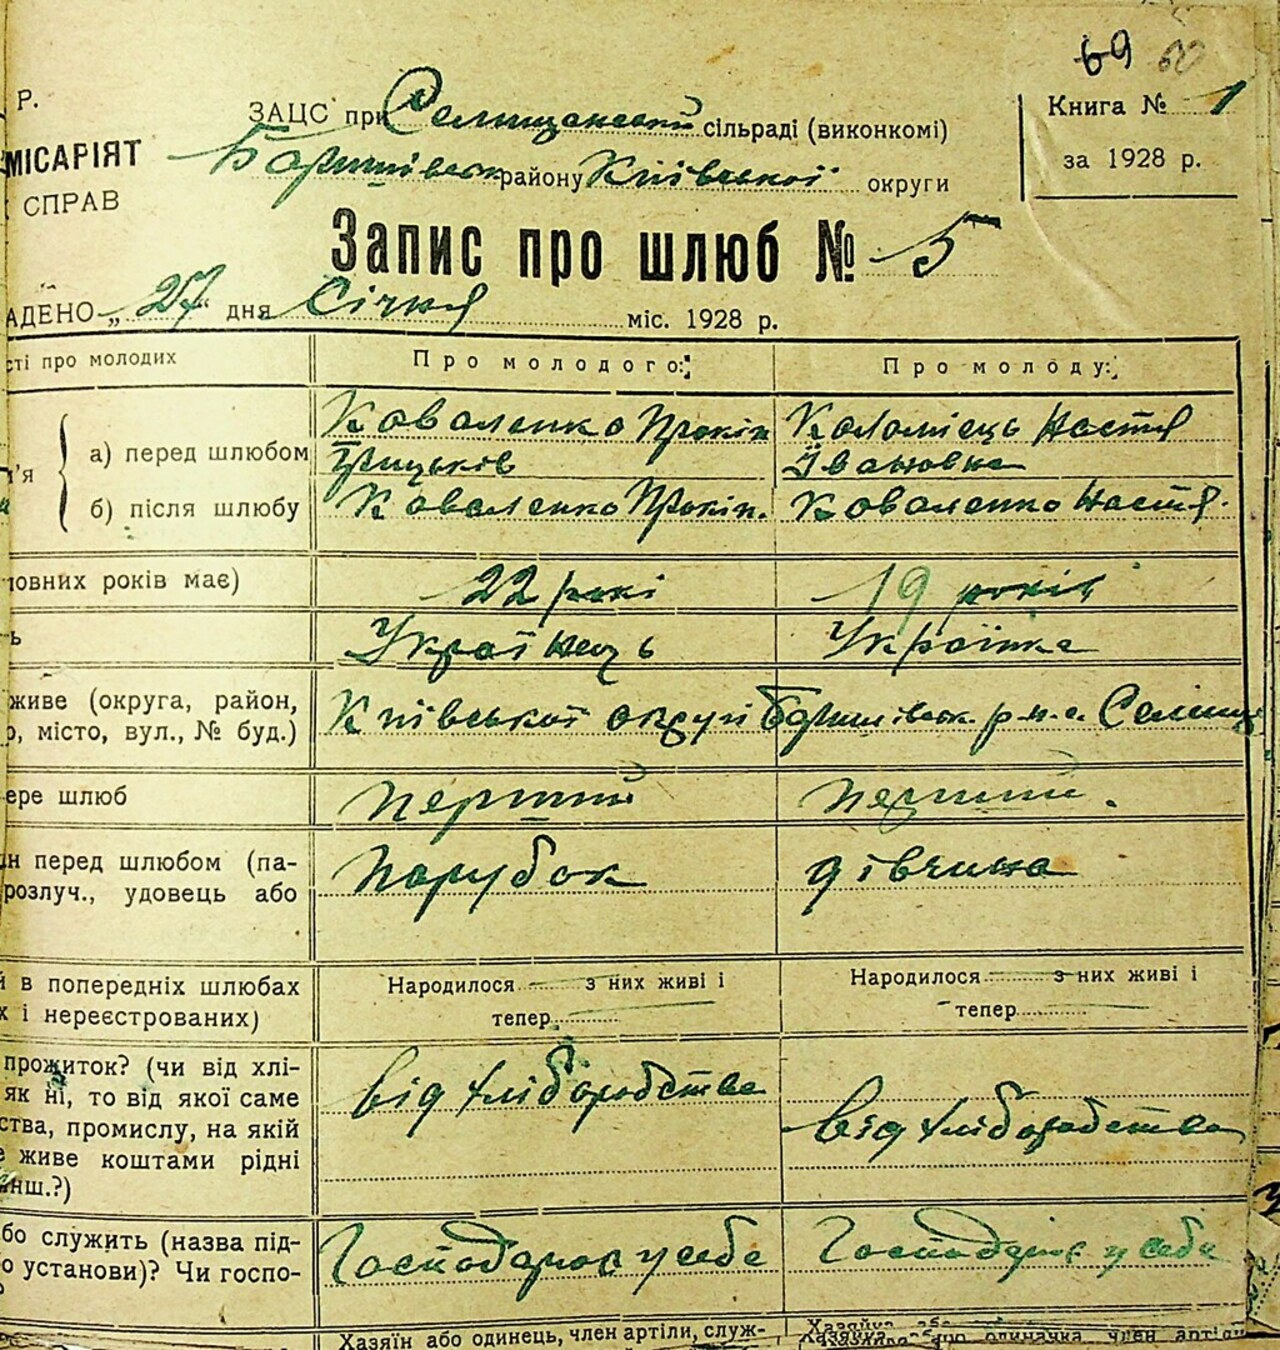 69 60
Р.
ЗАЦС при Селищанській сільраді (виконкомі)
Книга № 1
МІСАРІЯТ
Баришівськ району Київської округи
за 1928 р.
СПРАВ
Запис про шлюб № 5
АДЕНО „27“ дня Січня міс. 1928 р.
сті про молодих
Про молодого:
Про молоду:
Коваленко Прокіп
Коломієць Настя
а) перед шлюбом
Грицьків
Івановна
м'я
б) після шлюбу
Коваленко Прокіп.
Коваленко Настя.
повних років має)
22 рокі
19 років
Українець
Українка
ь
живе (округа, район,
Київської округи Баришівськ. р-н. с. Селищ
о, місто, вул., № буд.)
ере шлюб
перший
перший.
ин перед шлюбом (па-
парубок
дівчина
розлуч., удовець або
й в попередніх шлюбах
Народилося з них живі і
Народилося з них живі і
х і нереєстрованих)
тепер
тепер
прожиток? (чи від хлі-
від хліборобства
як ні, то від якої саме
від хліборобства
ства, промислу, на якій
е живе коштами рідні
инш.?)
бо служить (назва під-
Господарює у себе
Господарює у себе
о установи)? Чи госпо-
Хазяїн або одинець, член артіли, служ-
одиначка, член артіли